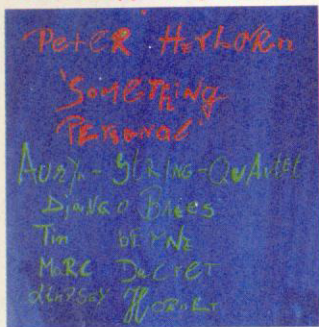 PeteR HerboRn
'SomeThing
PeRsonal'
Auryn-String-Quartet
Django Bates
Tim beRne
MaRc DucReT
Lindsay HoRneR